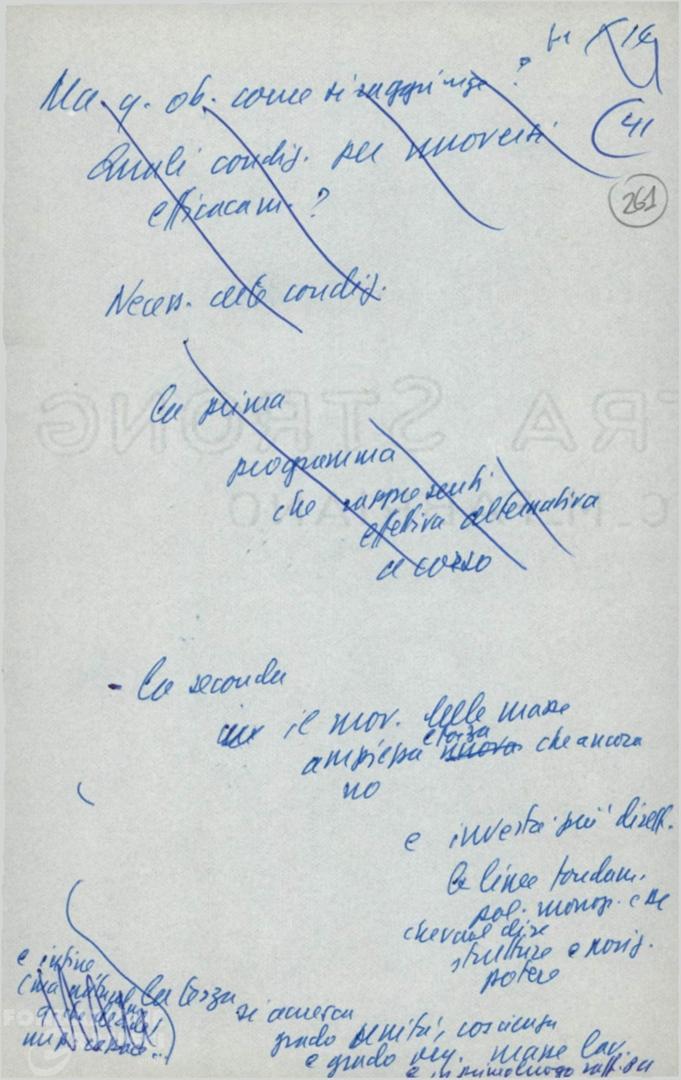 41
261
Ma q. ob. come si raggiunge?
Quali condiz. per muoversi
efficacam.?
Necess. certe condiz.
La prima
programma
che rappresenti
effettiva alternativa
al corso
- La seconda
il mov. delle masse
ampiezza e forza nuova che ancora
no
e investa più dirett.
le linee fondam.
pol. monop. che
che vuol dire
strutture e posiz.
potere
e infine
La terza
si accresca
grado unità, coscienza
e grado masse lav.